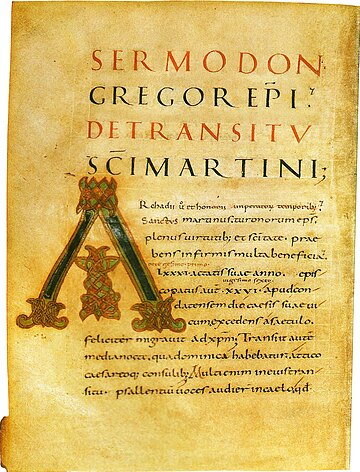 SERMO DOÑ
GREGOR EP̄I.
DE TRANSITV
SC̄I MARTINI;
ARchadii ū et honorii imperatorū temporibꝰ
Sanctus martinus turonorum eps,
plenus uirtutib; et sc̄itate, prae
bens infirmis multa beneficia,
octogesimo primo
LXXXI. aetatis suae anno. epis
uigesimo sexto
copatus aut̄ XXVI. apud con
datensem diocaesis suae ui
cum excedens a saeculo.
feliciter migravit ad xp̄m; Transiit aut̄
media nocte, qua dominica habebatur, attico
caesarioq; consulib; Multi enim in eius tran
situ psallentiū uoces audier̄ in caelo, qd